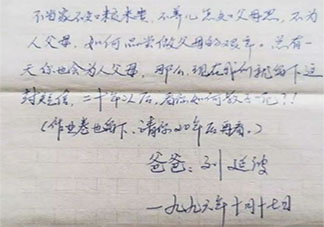 不当家不知柴米贵，不养儿不知父母恩，不为
人父母，如何品尝做父母的艰辛。总有一
天你也会为人父母，那么，现在我们就写下这
封短信，二十年以后，看你如何教子元？！
(作业卷也留下，请你20年后再看。)
爸爸：刘廷彼
一九九六年十月十七日